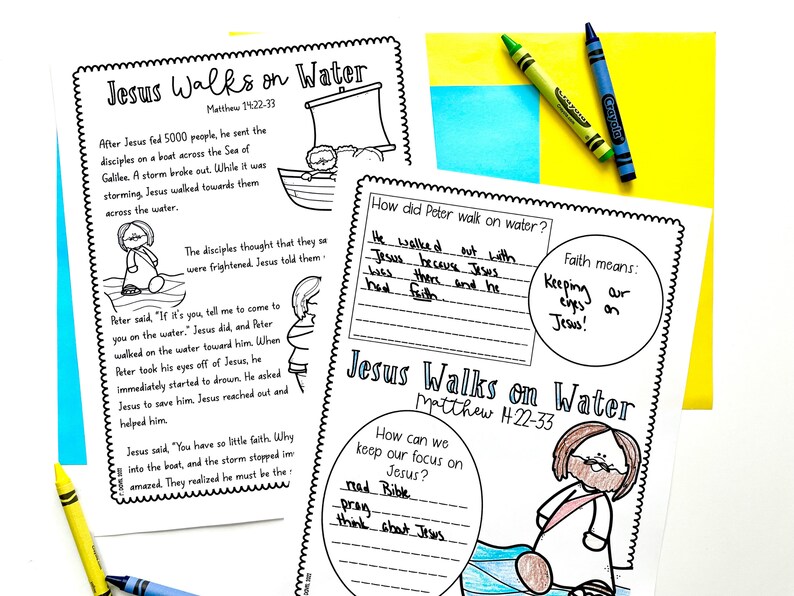 Jesus Walks on Water
Matthew 14:22-33
After Jesus fed 5000 people, he sent the
disciples on a boat across the Sea of
Galilee. A storm broke out. While it was
storming, Jesus walked towards them
across the water.
The disciples thought that they
were frightened. Jesus told them
Peter said, "If it's you, tell me to come to
you on the water." Jesus did, and Peter
walked on the water toward him. When
Peter took his eyes off of Jesus, he
immediately started to drown. He asked
Jesus to save him. Jesus reached out and
helped him.
Jesus said, "You have so little faith. Why
into the boat, and the storm stopped
amazed. They realized he must be the
How did Peter walk on water?
He walked out with
Jesus because Jesus
was there and he
had faith
Faith means:
Keeping our
eyes on
Jesus!
Jesus Walks on Water
Matthew 14:22-33
How can we
keep our focus on
Jesus?
read Bible
pray
think about Jesus
Crayola
Crayola